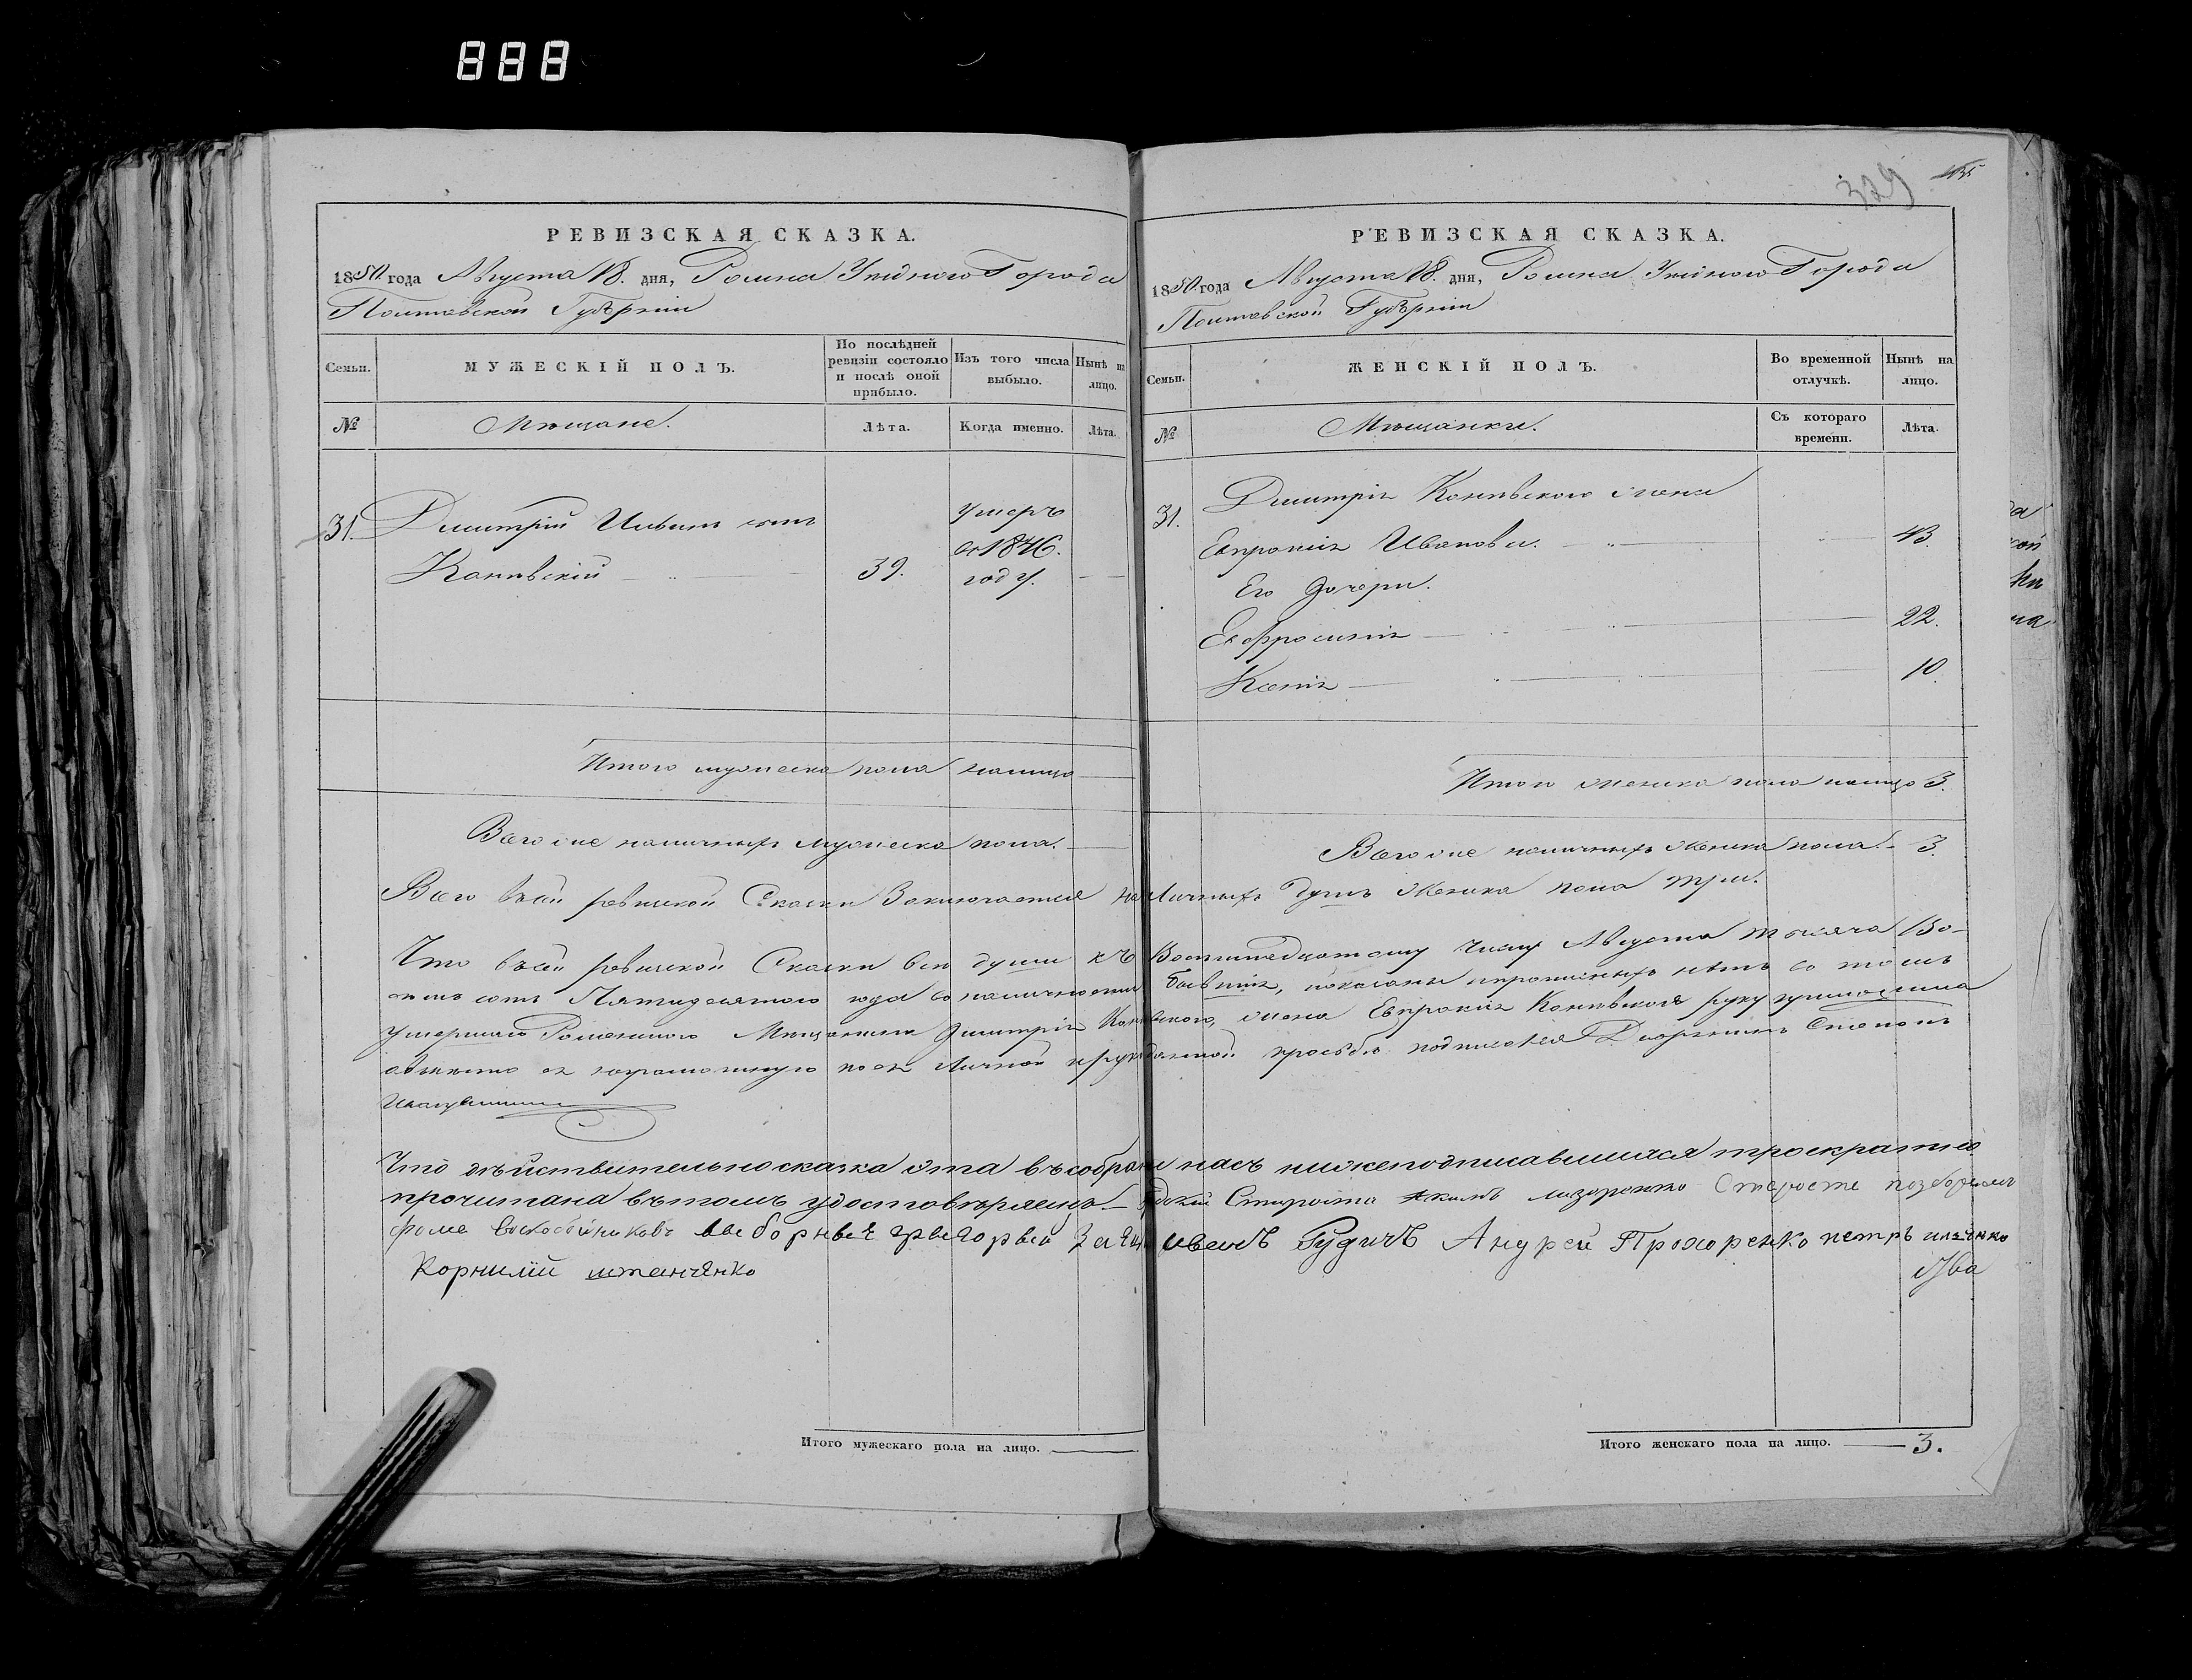 888
329
РЕВИЗСКАЯ СКАЗКА.
1850 года Августа 18. дня, Ромна Уѣзднаго Города
Полтавской Губѣрніи
Семьи.
МУЖЕСКІЙ ПОЛЪ.
По послѣдней ревизіи состояло и послѣ оной прибыло.
Изъ того числа выбыло.
Нынѣ на лицо.
№
Мѣщане.
Лѣта.
Когда именно.
Лѣта.
31. Дмитрій Ильинъ сынъ
Каневскій 39.
умеръ
въ 1846.
году.
Итого мужеска пола налицо
Всего же наличныхъ мужеска пола.
РЕВИЗСКАЯ СКАЗКА.
1850 года Августа 18. дня, Ромна Уѣзднаго Города
Полтавской Губѣрніи
Семьи.
ЖЕНСКІЙ ПОЛЪ.
Во временной отлучкѣ.
Нынѣ на лицо.
№
Мѣщанки.
Съ котораго времени.
Лѣта.
31. Дмитрія Каневского жена
Евпраксія Иванова. 43.
Его дочери.
Евфросинія 22.
Ксенія 10.
Итого женска пола налицо 3.
Всего же наличныхъ женска пола 3.
Всего въ сей ревизской Скаски Заключается наличныхъ душъ женска пола три.
Что въ сей ревизской Скаски всѣ души къ Восемнадцатому числу Августа тысяча Во-
семь сотъ Пятидесятого года въ наличности бывшія, показаны и прописныхъ нѣтъ въ томъ
умершаго Роменского Мѣщанина Дмитрія Каневского, жена Евпраксія Каневская руку приложила
а вмѣсто ея неграмотную по ея личной и рукоданной прозьбѣ подписался Дворянинъ Степанъ
Что дѣйствительно сказка эта въ собраніи насъ нижеподписавшихся троекратно
прочитана въ томъ удостовѣряемъ. Староста Акимъ лазоренко Староста
фома воскобойниковъ выборные григорий Заяц иванъ Гудичъ Андрей Прохоренко петръ
Корнилій штанченко
Ива
Итого мужескаго пола на лицо.
Итого женскаго пола на лицо. 3.